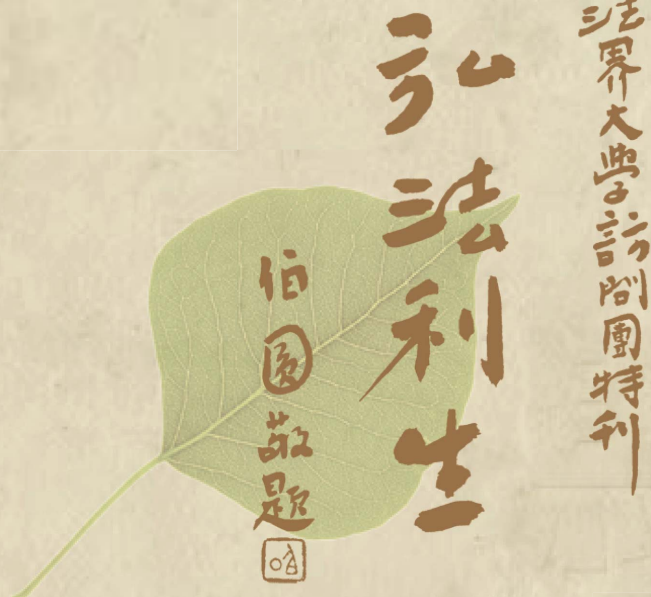 法界大學訪問團特刊
弘法利生
伯圓敬題